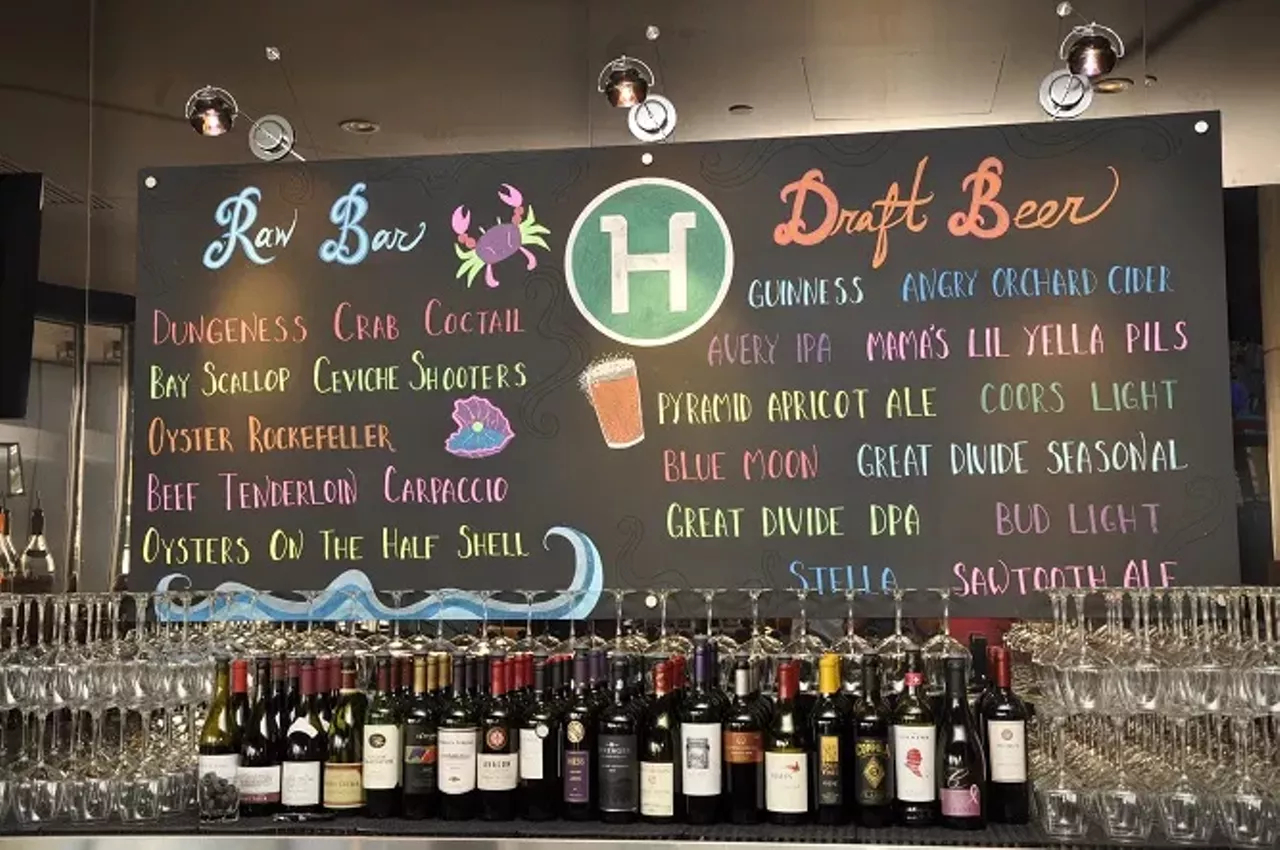 Raw Bar
DUNGENESS CRAB COCTAIL
BAY SCALLOP CEVICHE SHOOTERS
OYSTER ROCKEFELLER
BEEF TENDERLOIN CARPACCIO
OYSTERS ON THE HALF SHELL
H
Draft Beer
GUINNESS ANGRY ORCHARD CIDER
AVERY IPA MAMA'S LIL YELLA PILS
PYRAMID APRICOT ALE COORS LIGHT
BLUE MOON GREAT DIVIDE SEASONAL
GREAT DIVIDE DPA BUD LIGHT
STELLA SAWTOOTH ALE
HESS